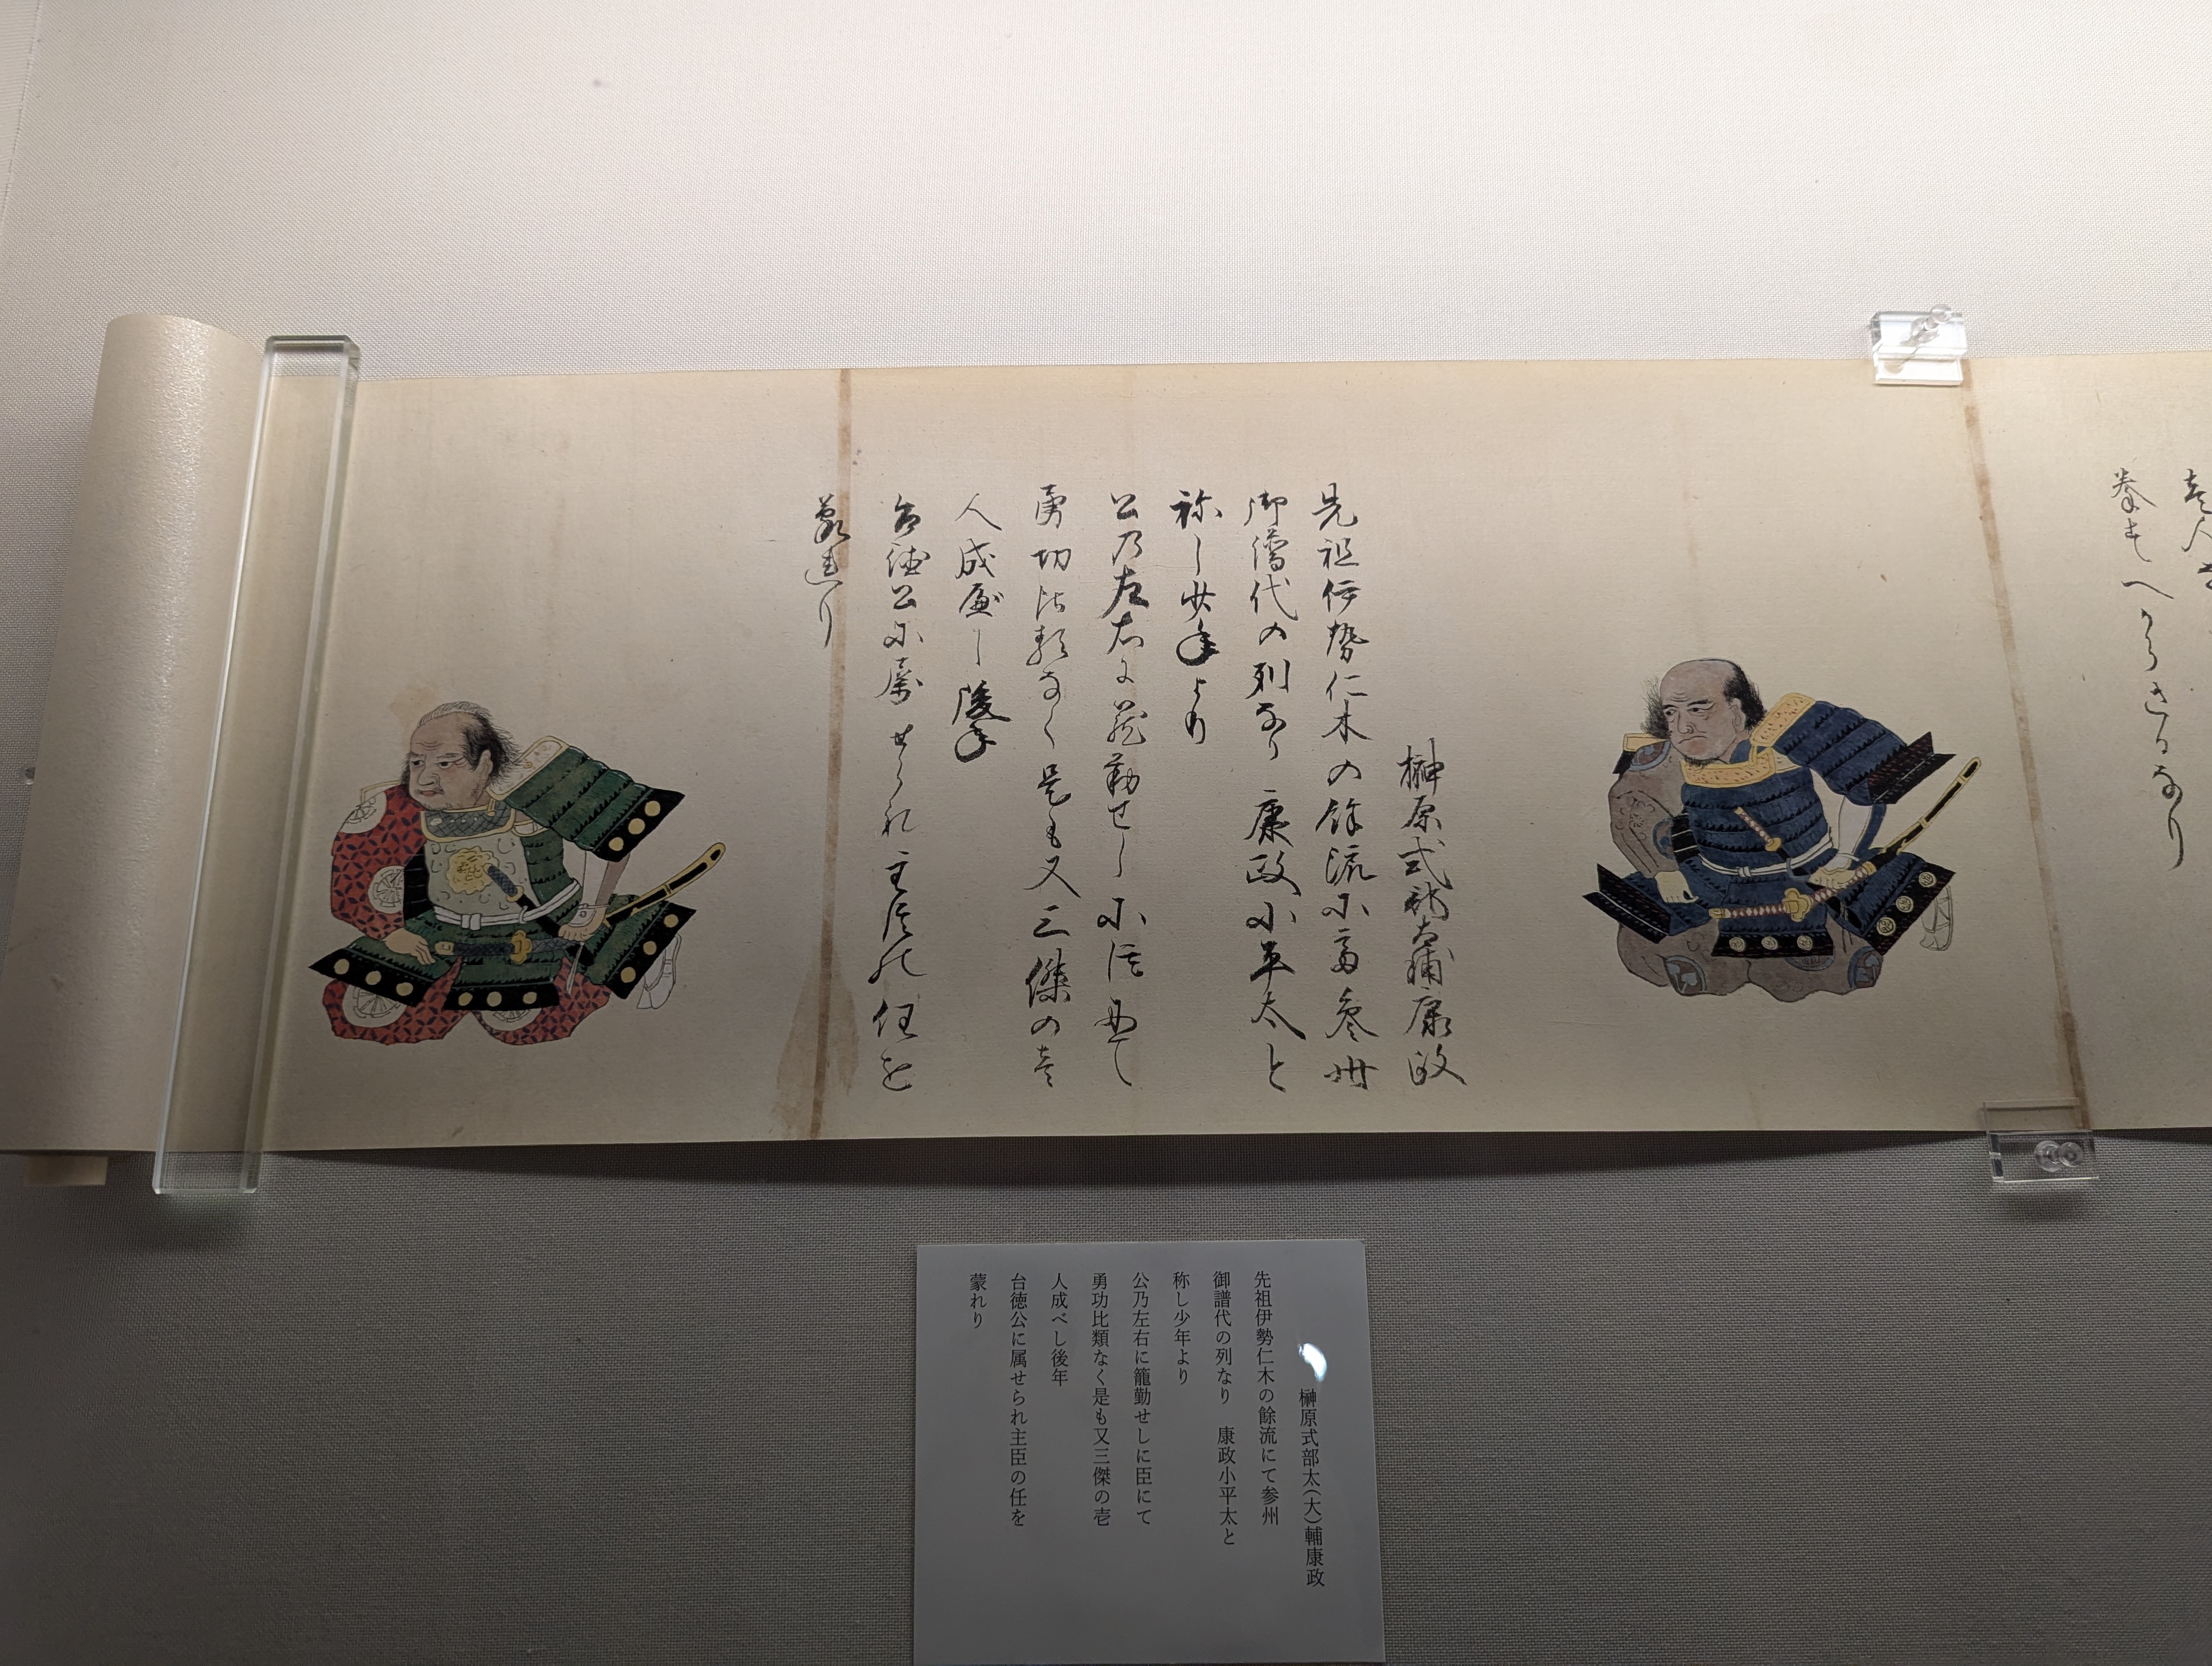 榊原式部太輔康政
先祖伊勢仁木の餘流にて参州
御譜代の列なり 康政小平太と
称し少年より
公乃左右に籠勤せしに臣にて
勇功比類なく是も又三傑の壱
人成べし後年
台徳公に属せられ主臣の任を
蒙れり
榊原式部太(大)輔康政
先祖伊勢仁木の餘流にて参州
御譜代の列なり 康政小平太と
称し少年より
公乃左右に籠勤せしに臣にて
勇功比類なく是も又三傑の壱
人成べし後年
台徳公に属せられ主臣の任を
蒙れり